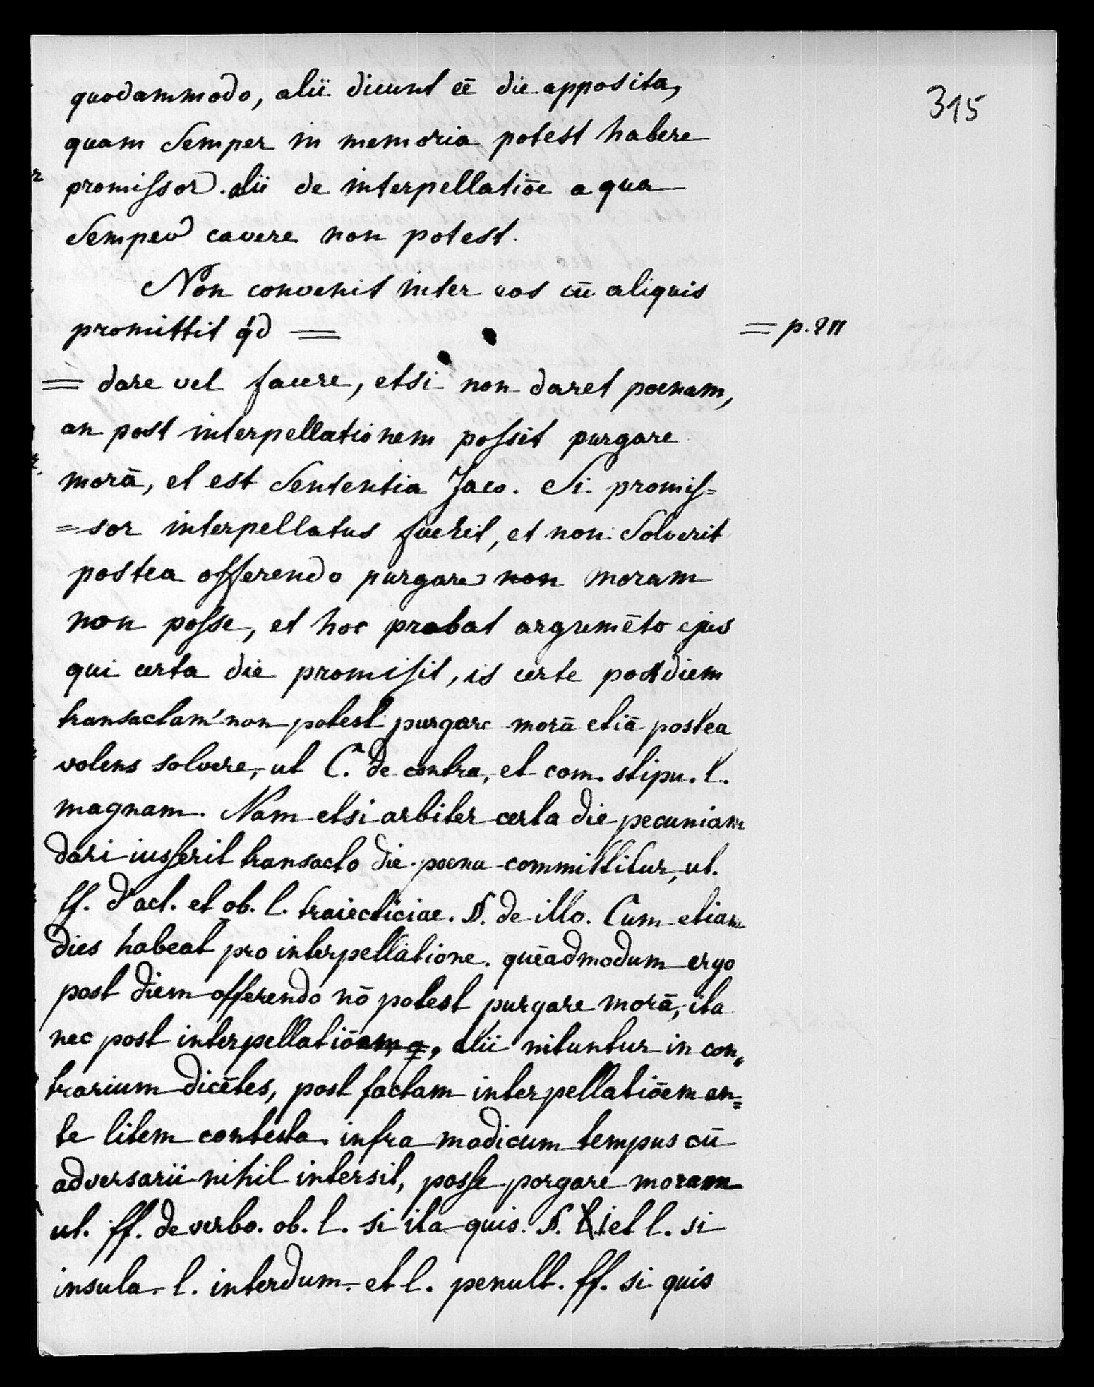 315
quodammodo, alii dicunt eē die apposita,
quam semper in memoria potest habere
promissor. alii de interpellatiōe a qua
semper cavere non potest.
Non convenit inter eos cū aliquis
promittit qd =
= p. 211
= dare vel facere, etsi non daret poenam,
an post interpellationem possit purgare
morā, et est sententia Jaco. Si promis=
=sor interpellatus fuerit, et non solverit
postea offerendo purgare non moram
non posse, et hoc probat argumēto ejus
qui certa die promisit, is certe post diem
transactam non potest purgare morā etiā postea
volens solvere, ut C. de contra, et com. stipu. l.
magnam. Nam etsi arbiter certa die pecuniam
dari iusserit transacto die poena committitur, ut.
ff. d' act. et ob. l. traiecticiae. §. de illo. Cum etiam
dies habeat pro interpellatione. quēadmodum ergo
post diem offerendo nō potest purgare morā, ita
nec post interpellatiōem, alii nituntur in con=
trarium dicētes, post factam interpellatiōem an=
te litem contesta. infra modicum tempus cū
adversarii nihil intersit, posse porgare moram
ut. ff. de verbo. ob. l. si ita quis. §. i et l. si
insula. l. interdum. et l. penult. ff. si quis